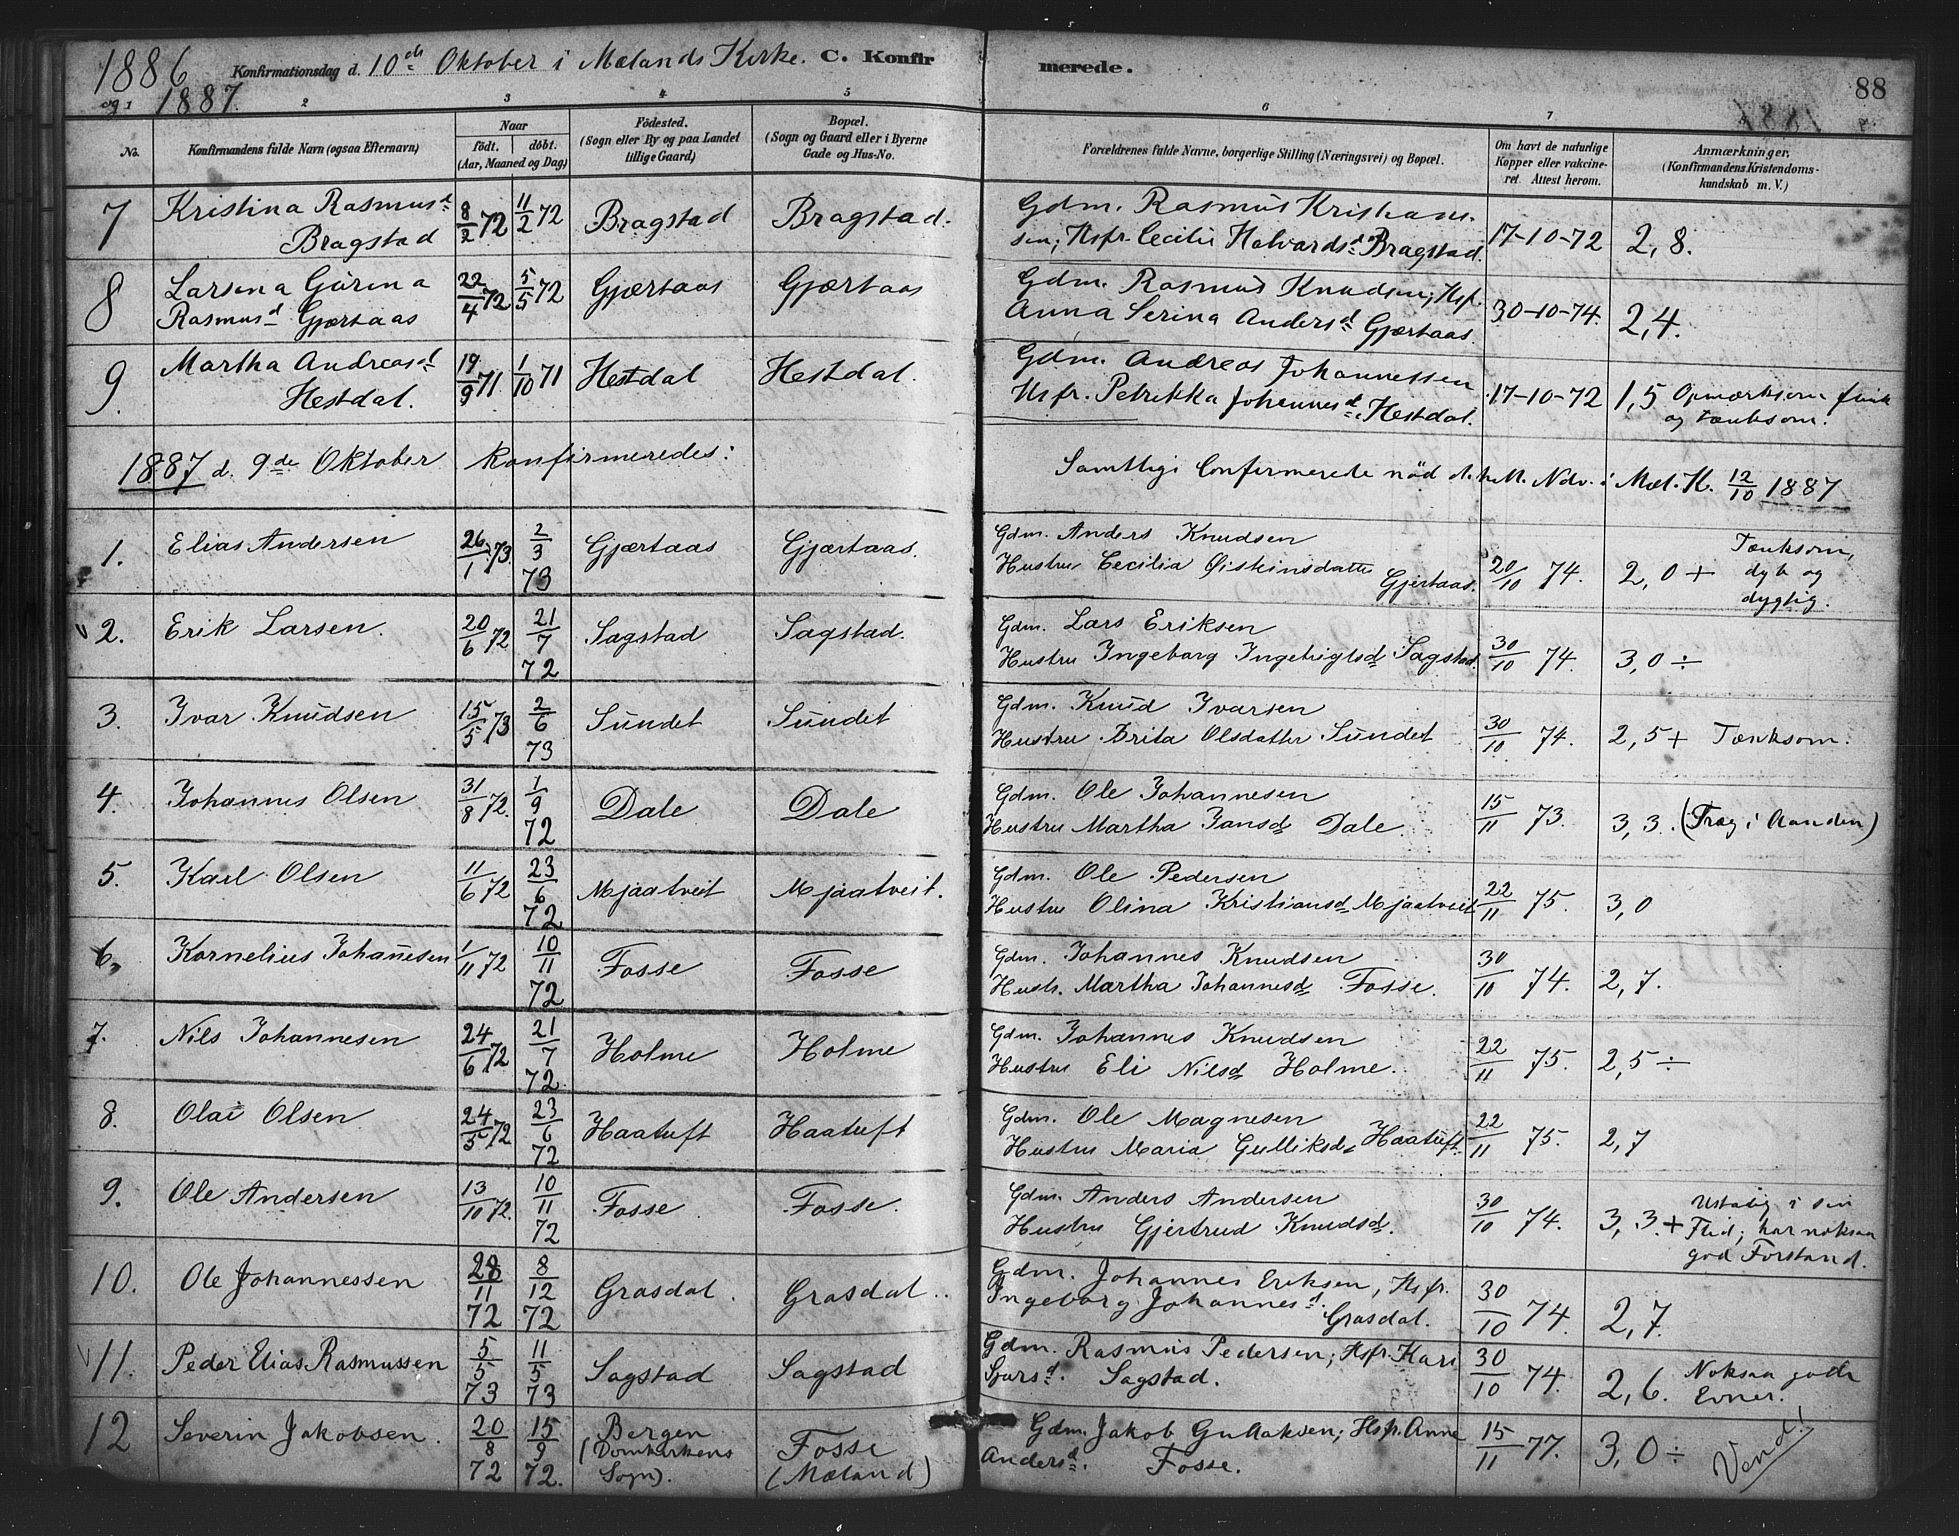 1886 Konfirmationsdag d. 10de Oktober i Mælands Kirke. C. Konfirmerede. 88
og 1887.
1 2 3 4 5 6 7
No. Konfirmandens fulde Navn (ogsaa Efternavn) Naar født. døbt. (Aar, Maaned og Dag) Födested. (Sogn eller By og paa Landet tillige Gaard) Bopæl. (Sogn og Gaard eller i Byerne Gade og Hus-No. Forældrenes fulde Navne, borgerlige Stilling (Næringsvei) og Bopæl. Om havt de naturlige Kopper eller vakcineret. Attest herom. Anmærkninger. (Konfirmandens Kristendomskundskab m. V.)
7 Kristina Rasmusd. Bragstad 8/2 72 11/2 72 Bragstad Bragstad. Gdm. Rasmus Kristiansen; Hsfr. Cecilie Halvardsd. Bragstad. 17-10-72 2,8.
8 Larsina Gurina Rasmusd. Gjærtaas 22/4 72 5/5 72 Gjærtaas Gjærtaas Gdm. Rasmus Knudsen; Hsf. Anna Serina Andersd. Gjærtaas. 30-10-74. 2,4.
9. Martha Andreasd. Hestdal. 19/9 71 1/10 71 Hestdal Hestdal. Gdm. Andreas Johannessen Hsfr. Petrikka Johannesd. Hestdal. 17-10-72 1,5 Opmærksom flink og tænksom.
1887 d. 9de Oktober konfirmeredes: Samtlige Confirmerede nød d. h. N. Ndv. i Mæl. K. 12/10 1887
1. Elias Andersen 26/1 73. 2/3 73 Gjærtaas Gjærtaas. Gdm. Anders Knudsen Hustru Cecilia Øistinsdatter Gjertaas. 20/10 74. 2,0 + Tænksom, dyb og dygtig.
2. Erik Larsen. 20/6 72 21/7 72 Sagstad Sagstad. Gdm. Lars Eriksen Hustru Ingeborg Ingebrigtsd Sagstad. 30/10 74. 3,0 ÷
3. Ivar Knudsen 15/5 73 2/6 73 Sundet Sundet Gdm. Knud Ivarsen Hustru Brita Olsdatter Sundet 30/10 74. 2,5 + Tænksom.
4. Johannes Olsen 31/8 72. 1/9 72 Dale Dale Gdm. Ole Johannesen Hustru Martha Jansd Dale. 15/11 73. 3,3. (Træg i Aanden)
5. Karl Olsen 11/6 72 23/6 72 Mjaatveit Mjaatveit. Gdm. Ole Pedersen Hustru Olina Kristiansd Mjaatveit 22/11 75. 3,0
6. Kornelius Johanesen 1/11 72 10/11 72 Fosse Fosse Gdm. Johannes Knudsen Hustr. Martha Johannesd Fosse. 30/10 74. 2,7.
7. Nils Johannesen 24/6 72 21/7 72 Holme Holme Gdm. Johannes Knudsen Hustru Eli Nilsd Holme. 22/11 75. 2,5 ÷
8. Olai Olsen 24/5 72 23/6 72 Haatuft Haatuft Gdm. Ole Magnesen Hustru Maria Gulliksd Haatuft. 22/11 75. 2,7
9. Ole Andersen 13/10 72. 10/11 72 Fosse Fosse. Gdm. Anders Andersen Hustru Gjertrud Knudsd. 30/10 74. 3,3.+ Ustadig i sin Flid; har noksaa god Forstand.
10. Ole Johannessen 28/11 72 8/12 72 Grasdal. Grasdal. Gdm. Johannes Eriksen, Hsfr. Ingeborg Johannesd. Grasdal. 30/10 74. 2,7.
11. Peder Elias Rasmussen 5/5 73 11/5 73 Sagstad Sagstad Gdm. Rasmus Pedersen; Hsfr. Kari Sjursd. Sagstad. 30/10 74. 2,6. Noksaa gode Evner.
12 Severin Jakobsen. 20/8 72 15/9 72. Bergen (Domkirkens Sogn). Fosse (Mæland) Gdm. Jakob Gullaksen; Hsfr. Anna Andersd. Fosse. 15/11 77. 3,0 ÷
Vend!